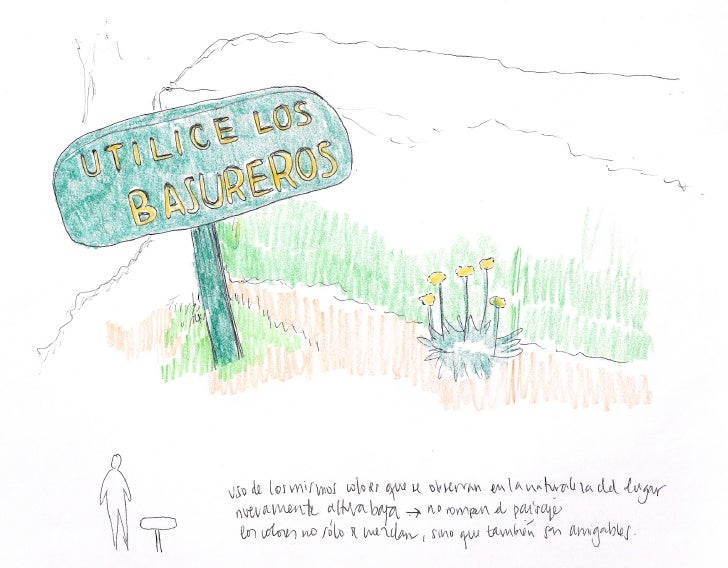 UTILICE LOS
BASUREROS
uso de los mismos colores que se observan en la naturaleza del lugar
nuevamente altura baja → no rompen el paisaje
los colores no sólo se mezclan, sino que también son amigables.